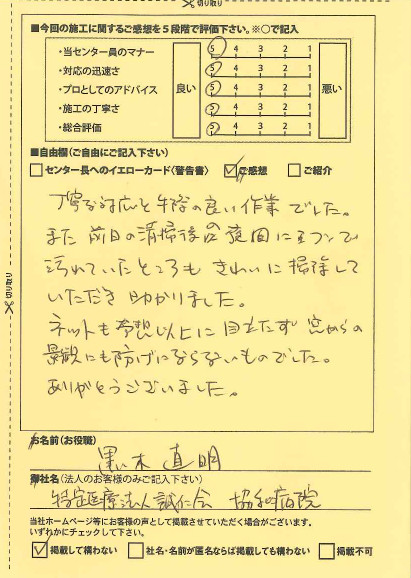 切り取り
■今回の施工に関するご感想を5段階で評価下さい。※○で記入
良い
悪い
・当センター員のマナー 5 4 3 2 1
・対応の迅速さ 5 4 3 2 1
・プロとしてのアドバイス 5 4 3 2 1
・施工の丁寧さ 5 4 3 2 1
・総合評価 5 4 3 2 1
■自由欄(ご自由にご記入下さい)
センター長へのイエローカード〈警告書〉 ご感想 ご紹介
丁寧な対応と手際の良い作業でした。
また前日の清掃後の夜間にハトフンで
汚れていたところもきれいに掃除して
いただき助かりました。
ネットも予想以上に目立たず窓からの
景観にも妨げにならないものでした。
ありがとうございました。
切り取り
お名前(お役職)
黒木 直明
御社名(法人のお客様のみご記入下さい)
特定医療法人誠仁会 協和病院
当社ホームページ等にお客様の声として掲載させていただく場合がございます。
いずれかにチェックして下さい。
掲載して構わない 社名・名前が匿名ならば掲載しても構わない 掲載不可